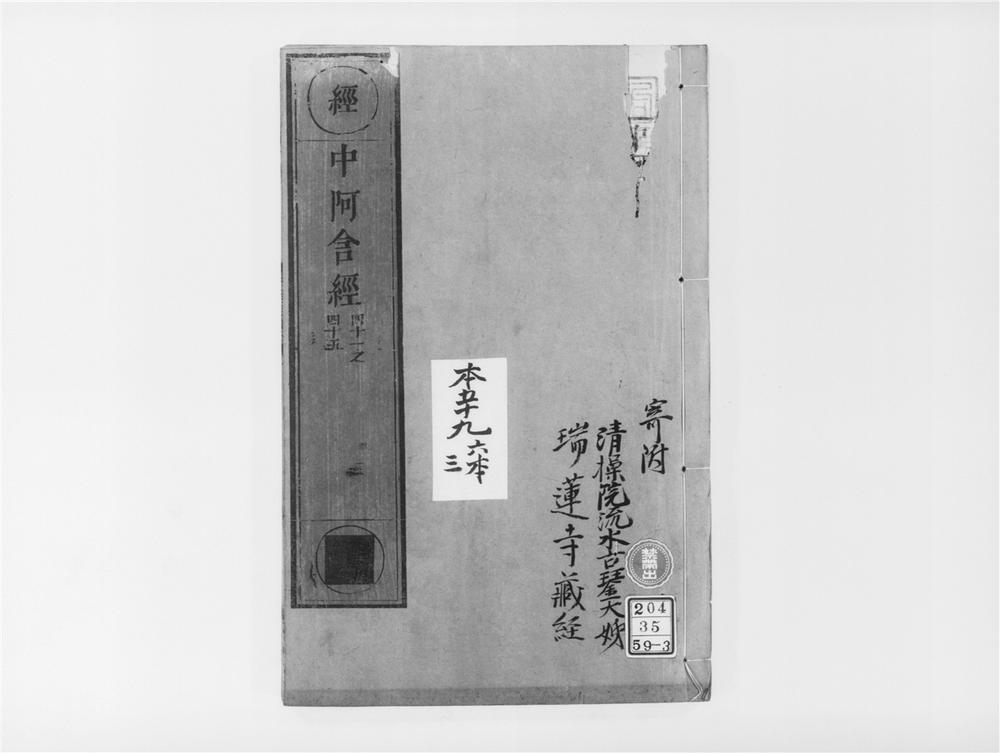 經
中阿含經
四十一之
四十五
本五十九
六本
三
寄附
清操院流水古琴大姊
瑞蓮寺藏経
禁帶出
204
35
59-3